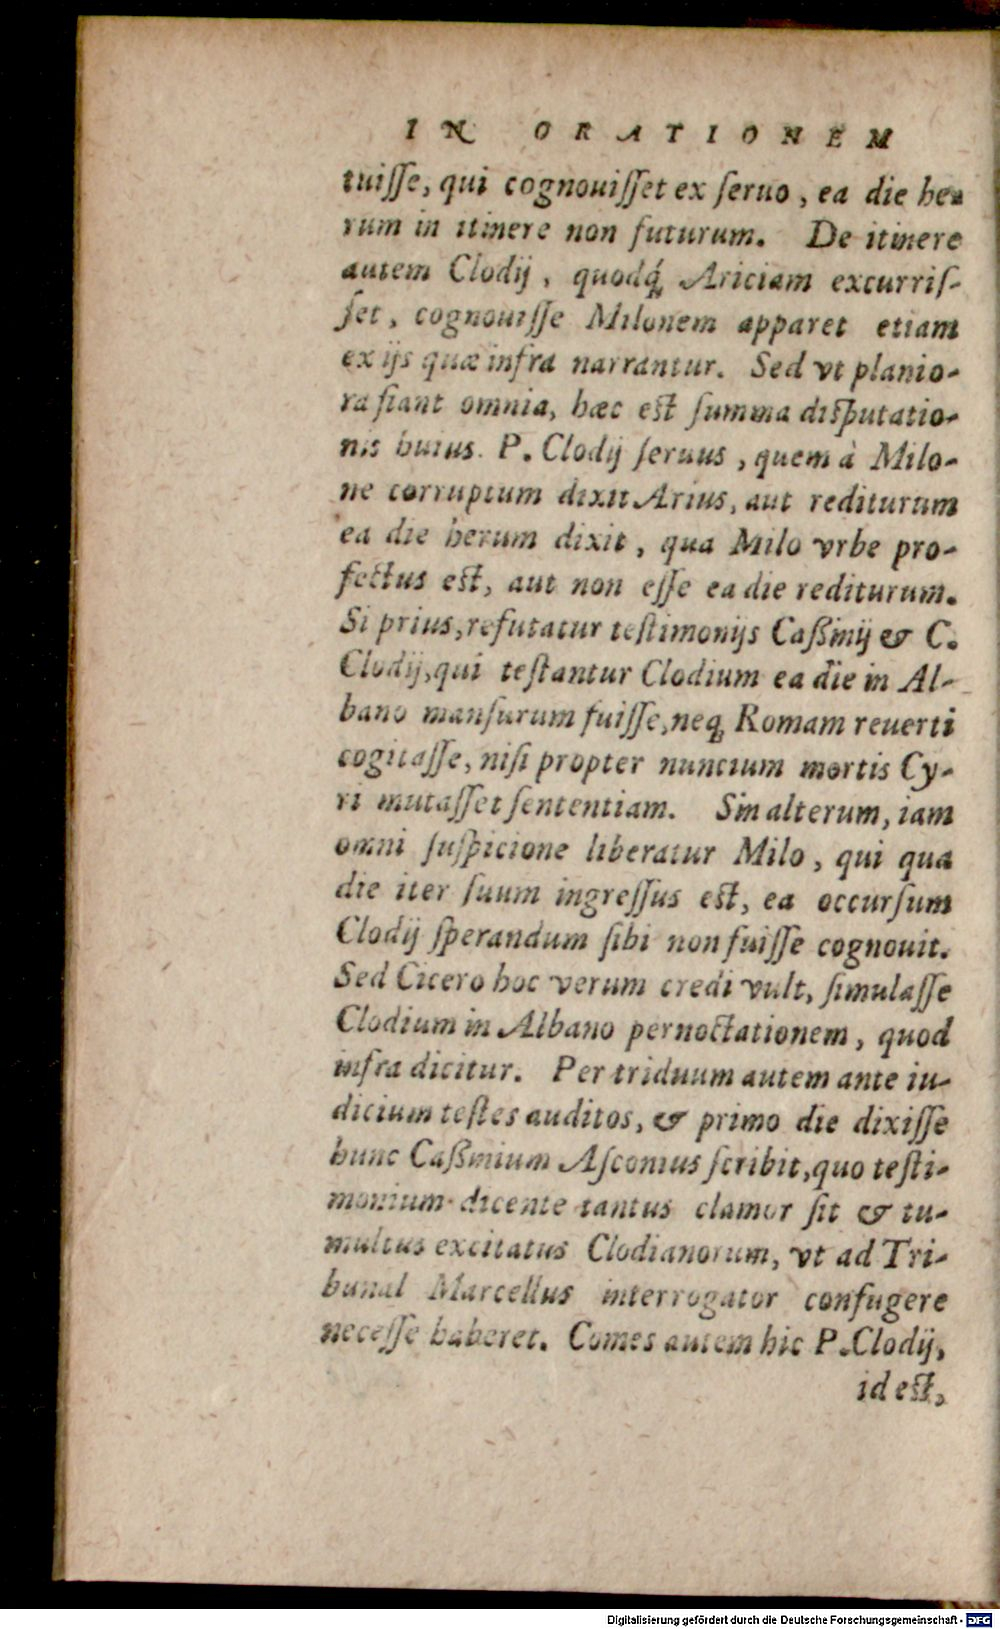 IN ORATIONEM
tuiſſe, qui cognouiſſet ex ſeruo, ea die he-
rum in itinere non futurum. De itinere
autem Clodij, quodq́; Ariciam excurriſ-
ſet, cognouiſſe Milonem apparet etiam
ex ijs quæ infra narrantur. Sed vt planio-
ra fiant omnia, hæc eſt ſumma diſputatio-
nis huius. P. Clodij ſeruus, quem à Milo-
ne corruptum dixit Arius, aut rediturum
ea die herum dixit, qua Milo vrbe pro-
fectus eſt, aut non eſſe ea die rediturum.
Si prius, refutatur teſtimonijs Caßinij & C.
Clodij, qui teſtantur Clodium ea die in Al-
bano manſurum fuiſſe, neq; Romam reuerti
cogitaſſe, niſi propter nuncium mortis Cy-
ri mutaſſet ſententiam. Sin alterum, iam
omni ſuſpicione liberatur Milo, qui qua
die iter ſuum ingreſſus eſt, ea occurſum
Clodij ſperandum ſibi non fuiſſe cognouit.
Sed Cicero hoc verum credi vult, ſimulaſſe
Clodium in Albano pernoctationem, quod
infra dicitur. Per triduum autem ante iu-
dicium teſtes auditos, & primo die dixiſſe
hunc Caßinium Aſconius ſcribit, quo teſti-
monium dicente tantus clamor ſit & tu-
multus excitatus Clodianorum, vt ad Tri-
bunal Marcellus interrogator confugere
neceſſe haberet. Comes autem hic P. Clodij,
id eſt,
Digitalisierung gefördert durch die Deutsche Forschungsgemeinschaft - DFG